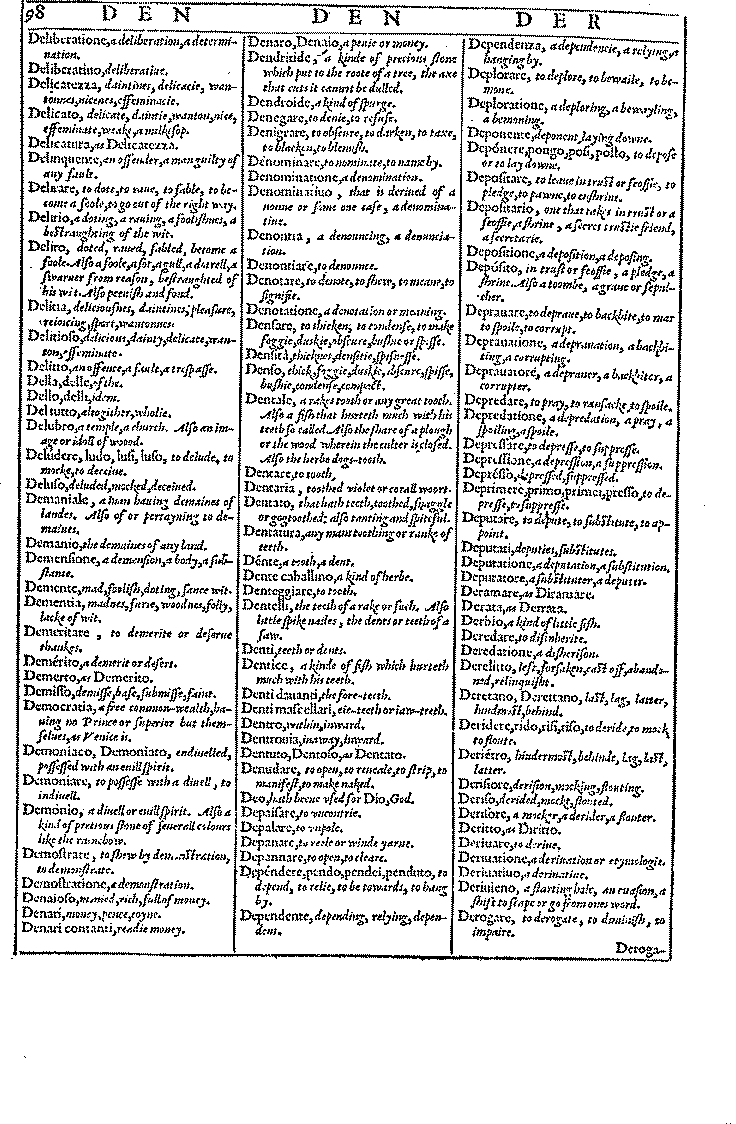 98 DEN DEN DER
Deliberatione, a deliberation, a determi-
nation.
Deliberatiuo, deliberatiue.
Delicatezza, daintines, delicacie, wan-
tonnes, nicenes, effeminacie.
Delicato, delicate, daintie, wanton, nice,
effeminate, weake, a milkesop.
Delicatura, as Delicatezza.
Delinquente, an offender, a man guilty of
any fault.
Delirare, to dote, to raue, to fable, to be-
come a foole, to go out of the right way.
Delirio, a doting, a rauing, a foolishnes, a
bestraughting of the wit.
Deliro, doted, raued, fabled, become a
foole. Also a foole, a sot, a gull, a
swaruer from reason, bestraughted of
his wit. Also peeuish and fond.
Delitia, deliciousnes, daintines, pleasure,
reioicing, sport, wantonnes.
Delitioso, delicious, dainty, delicate, wan-
ton, effeminate.
Delitto, an offence, a fault, a trespasse.
Della, delle, of the.
Dello, delli, idem.
Del tutto, altogither, wholie.
Delubro, a temple, a church. Also an im-
age or idoll of wood.
Deludere, ludo, lusi, luso, to delude, to
mocke, to deceiue.
Deluso, deluded, mocked, deceined.
Demaniale, a man hauing demaines of
landes. Also of or pertayning to de-
maines.
Demanio, the demaines of any land.
Demensione, a demension, a body, a sub-
stante.
Demente, mad, foolish, doting, sance wit.
Dementia, madnes, furie, woodnes, folly,
lacke of wit.
Demeritare, to demerite or deserue
thankes.
Demérito, a demerit or desert.
Demerto, as Demerito.
Demisso, demisse, base, submisse, faint.
Democratia, a free common-wealth, ha-
uing no Prince or superior but them-
selues, as Venice is.
Demoniaco, Demoniato, endiuelled,
possessed with an euill spirit.
Demoniare, to possesse with a diuell, to
indiuell.
Demónio, a diuell or euill spirit. Also a
kind of pretious stone of seuerall colours
like the rainebow.
Demostrare, to shew by demonstration,
to demonstrate.
Demostratione, a demonstration.
Denaioso, monied, rich, full of money.
Denari, money, pence, coyne.
Denari contanti, readie money.
Denaro, Denaio, a penie or money.
Dendritide, a kinde of precious stone
which put to the roote of a tree, the axe
that cuts it cannot be dulled.
Dendroide, a kind of spurge.
Denegare, to denie, to refuse.
Denigrare, to obscure, to darken, to taxe,
to blacken, to blemish.
Denominare, to nominate, to name by.
Denominatione, a denomination.
Denominatiuo, that is deriued of a
nowne or some one case, a denomina-
tiue.
Denontia, a denouncing, a denuncia-
tion.
Denontiare, to denounce.
Denotare, to denote, to shew, to meane, to
signifie.
Denotatione, a denotation or meaning.
Densare, to thicken, to condense, to make
foggie, duskie, obscure, bushie or spisse.
Densità, thicknes, densitie, spissesse.
Denso, thick, foggie, duskie, obscure, spisse,
bushie, condense, compact.
Dentale, a rakes tooth or any great tooth.
Also a fish that hurteth much with his
teeth so called. Also the share of a plough
or the wood wherein the culter is closed.
Also the herbe dogs-tooth.
Dentare, to tooth.
Dentaria, toothed violet or corall woort.
Dentato, that hath teeth, toothed, snaggle
or gogtoothed; also tanting and spiteful.
Dentatura, any mans toothing or ranke of
teeth.
Dénte, a tooth, a dent.
Dente caballino, a kind of herbe.
Denteggiare, to tooth.
Dentelli, the teeth of a rake or such. Also
little spike nailes, the dents or teeth of a
saw.
Denti, teeth or dents.
Dentice, a kinde of fish which hurteth
much with his teeth.
Denti dauanti, the fore-teeth.
Denti mascellari, eie-teeth or iaw-teeth.
Dentro, within, inward.
Dentrouia, inaway, inward.
Dentuto, Dentoso, as Dentato.
Denudare, to open, to reueale, to strip, to
manifest, to make naked.
Deo, hath beene vsed for Dio, God.
Depaisare, to vncontrie.
Depalare, to vnpole.
Depanare, to reele or winde yarne.
Depannare, to open, to cleare.
Depéndere, pendo, pendei, penduto, to
depend, to relie, to be towards, to hang
by.
Dependente, depending, relying, depen-
dent.
Dependenza, a dependencie, a relying, a
hanging by.
Deplorare, to deplore, to bewaile, to be-
mone.
Deploratione, a deploring, a bewayling,
a bemoning.
Deponente, deponent, laying downe.
Depónere, pongo, posi, posto, to depose
or to lay downe.
Depositare, to leaue in trust or feoffie, to
pledge, to pawne, to enshrine.
Depositario, one that takes in trust or a
feoffie, a shrine, a secret trustie friend,
a secretarie.
Depositione, a deposition, a deposing.
Depósito, in trust or feoffie, a pledge, a
shrine. Also a toombe, a graue or sepul-
cher.
Deprauare, to depraue, to backbite, to mar
to spoile, to corrupt.
Deprauatione, a deprauation, a backbi-
ting, a corrupting.
Deprauatore, a deprauer, a backbiter, a
corrupter.
Depredare, to pray, to ransacke, to spoile.
Depredatione, a depredation, a pray, a
spoiling, a spoile.
Depressare, to depresse, to suppresse.
Depressione, a depression, a suppression.
Deprésso, depressed, suppressed.
Deprimere, primo, primei, presso, to de-
presse, to suppresse.
Deputare, to depute, to substitute, to ap-
point.
Deputati, deputies, substitutes.
Deputatione, a deputation, a substitution.
Deputatore, a substituter, a deputer.
Deramare, as Diramare.
Derata, as Derrata.
Derbio, a kind of little fish.
Deredare, to disinherite.
Deredatione, a disherison.
Derelitto, left, forsaken, cast off, aband-
ned, relinquisht.
Deretano, Derettano, last, lag, latter,
hindmost, behind.
Deridere, rido, risi, riso, to deride, to mock
to floute.
Deriétro, hindermost, behinde, lag, last,
latter.
Derisione, derision, mocking, flouting.
Deriso, derided, mockt, flouted.
Derisore, a mocker, a derider, a flouter.
Deritto, as Diritto.
Deriuare, to deriue.
Deriuatione, a deriuation or etymologie.
Deriuatiuo, a deriuatiue.
Deriuieno, a starting hale, an euasion, a
shift to scape or go from ones word.
Derogare, to derogate, to diminish, to
impaire.
Deroga-